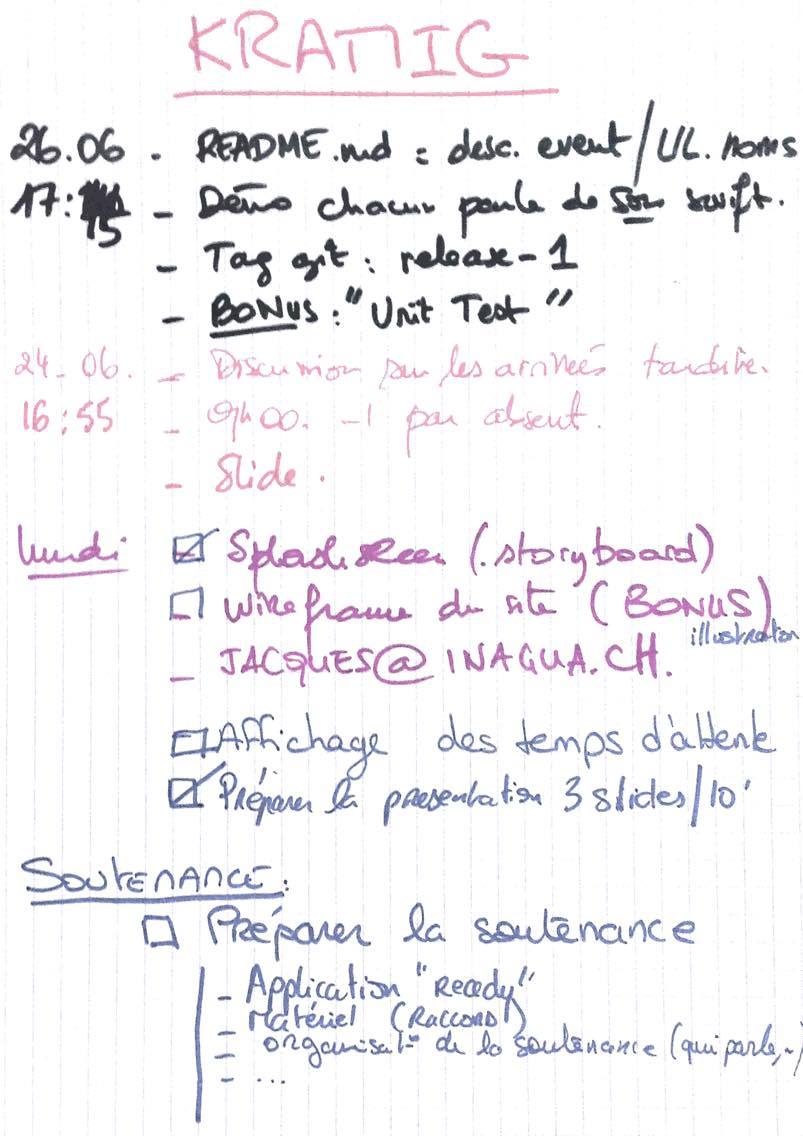 KRATTIG
26.06 - README.md : desc. event / UL. noms
17:15 - Démo chacun parle de son swift.
- Tag git : release-1
- BONUS : "Unit Test"
24-06. - Discussion sur les arrivées tardive.
16:55 - 9h00. -1 par absent.
- Slide.
lundi ☑ Splash screen (.storyboard)
☐ wireframe du site (BONUS)
illustration
- JACQUES@INAGUA.CH.
☐ Affichage des temps d'attente
☑ Préparer la présentation 3 slides/10'
SOUTENANCE :
☐ Préparer la soutenance
- Application "Ready"
- Matériel (Raccord)
- organisat° de la soutenance (qui parle,..)
- ...